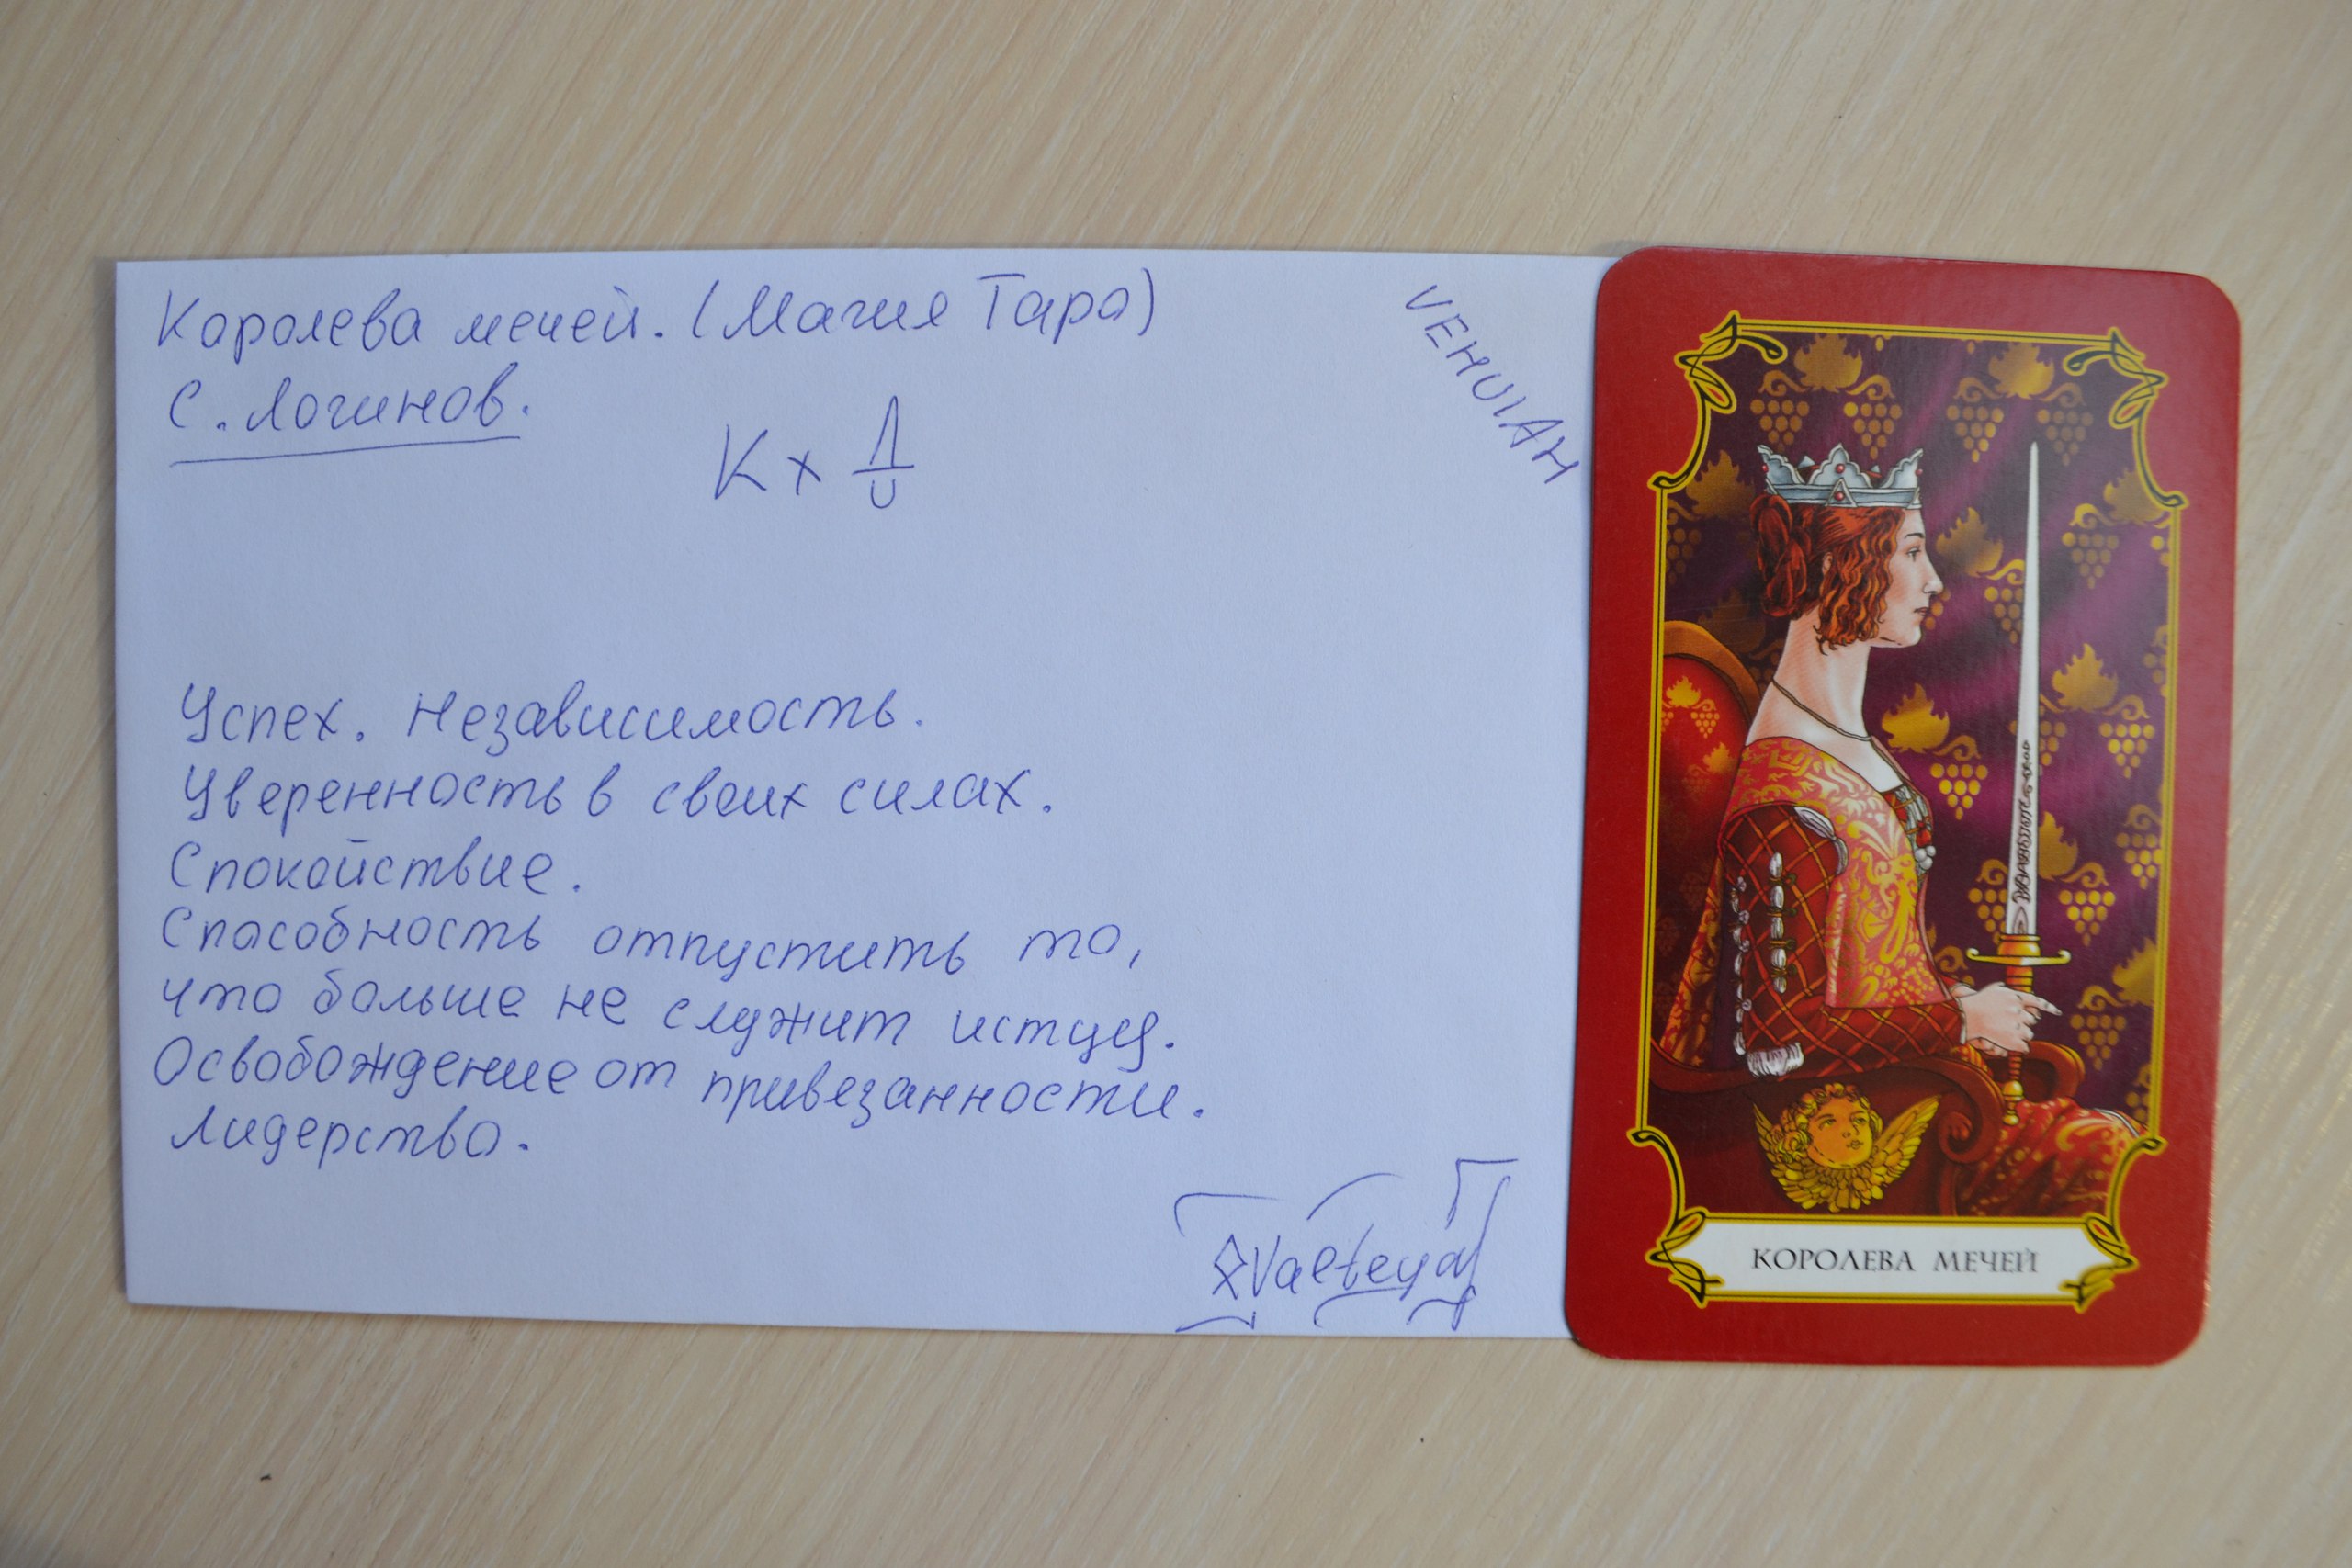 Королева мечей. (Магия Таро)
С. Логинов.
VEHUIAH
К х
Успех. Независимость.
Уверенность в своих силах.
Спокойствие.
Способность отпустить то,
что больше не служит истцу.
Освобождение от привезанности.
Лидерство.
Valteya
КОРОЛЕВА МЕЧЕЙ